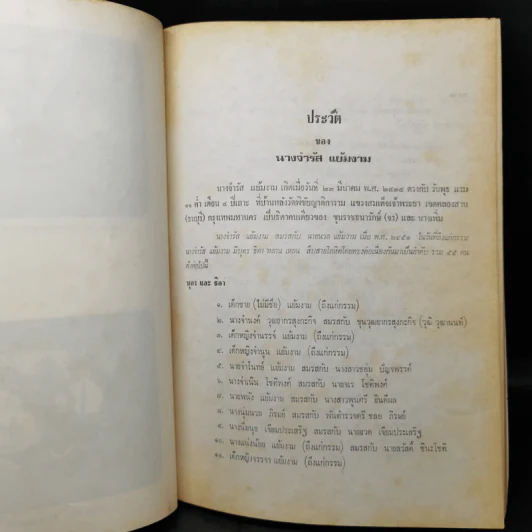 ประวัติ
ของ
นางจำรัส แย้มงาม
นางจำรัส แย้มงาม เกิดเมื่อวันที่ ๒๓ มีนาคม พ.ศ. ตรงกับ วันพุธ แรม
๑๑ ค่ำ เดือน ๔ ปีเถาะ ที่บ้านหลังวัดพิชัยญาติการาม แขวงสมเด็จเจ้าพระยา เขตคลองสาน
(ธนบุรี) กรุงเทพมหานคร เป็นธิดาคนเดียวของ ขุนราชเธนารักษ์ (จร) และ นางเทียม
นางจำรัส แย้มงาม สมรสกับ นายนวล แย้มงาม เมื่อ พ.ศ. ๒๔๕๑ ในวันที่ถึงแก่กรรม
นางจำรัส แย้มงาม มีบุตร ธิดา หลาน เหลน สืบสายโลหิตโดยตรงต่อเนื่องกันมาเป็นลำดับ รวม ๔๕ คน
ดังต่อไปนี้
บุตร และ ธิดา
๑. เด็กชาย (ไม่มีชื่อ) แย้มงาม (ถึงแก่กรรม)
๒. นางจำนงค์ วุฒยากรสุงกะกิจ สมรสกับ ขุนวุฒยากรสุงกะกิจ (วุฒิ วุฒานนท์)
๓. เด็กหญิงจำนรรจ์ แย้มงาม (ถึงแก่กรรม)
๔. เด็กหญิงจำนูน แย้มงาม (ถึงแก่กรรม)
๕. นายจำโนทย์ แย้มงาม สมรสกับ นางสาวชอุ่ม ปัญจพรรค์
๖. นางจำเนิน โชติพงศ์ สมรสกับ นายจเร โชติพงศ์
๗. นายพนัง แย้มงาม สมรสกับ นางสาวพูนศรี อินดีผล
๘. นางนุ่มนวล ภิรมย์ สมรสกับ พันตำรวจตรี ชลอ ภิรมย์
๙. นางนิ่มนุช เจียมประเสริฐ สมรสกับ นายสวด เจียมประเสริฐ
๑๐. นางแน่งน้อย แย้มงาม (ถึงแก่กรรม) สมรสกับ นายสวัสดิ์ ชินะโชติ
๑๑. เด็กหญิงจรรจา แย้มงาม (ถึงแก่กรรม)